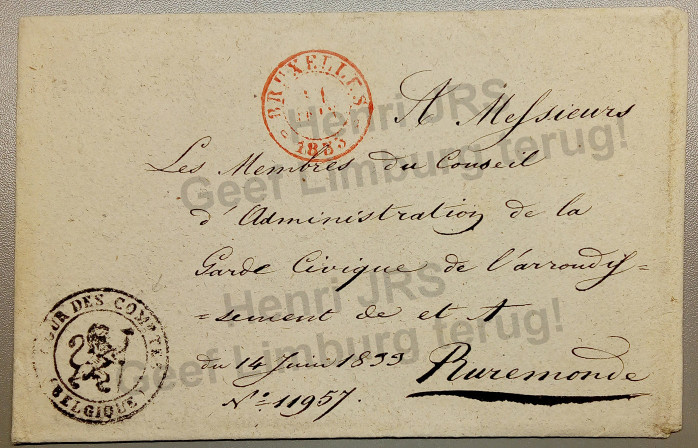 BRUXELLES
1833
A Messieurs
Les Membres du Conseil
d'Administration de la
Garde Civique de l'arrondis=
=sement de et A
Ruremonde
du 14 Juin 1833
N° 11957.
COUR DES COMPTES
(BELGIQUE)
Henri JRS
Geef Limburg terug!
Henri JRS
Geef Limburg terug!